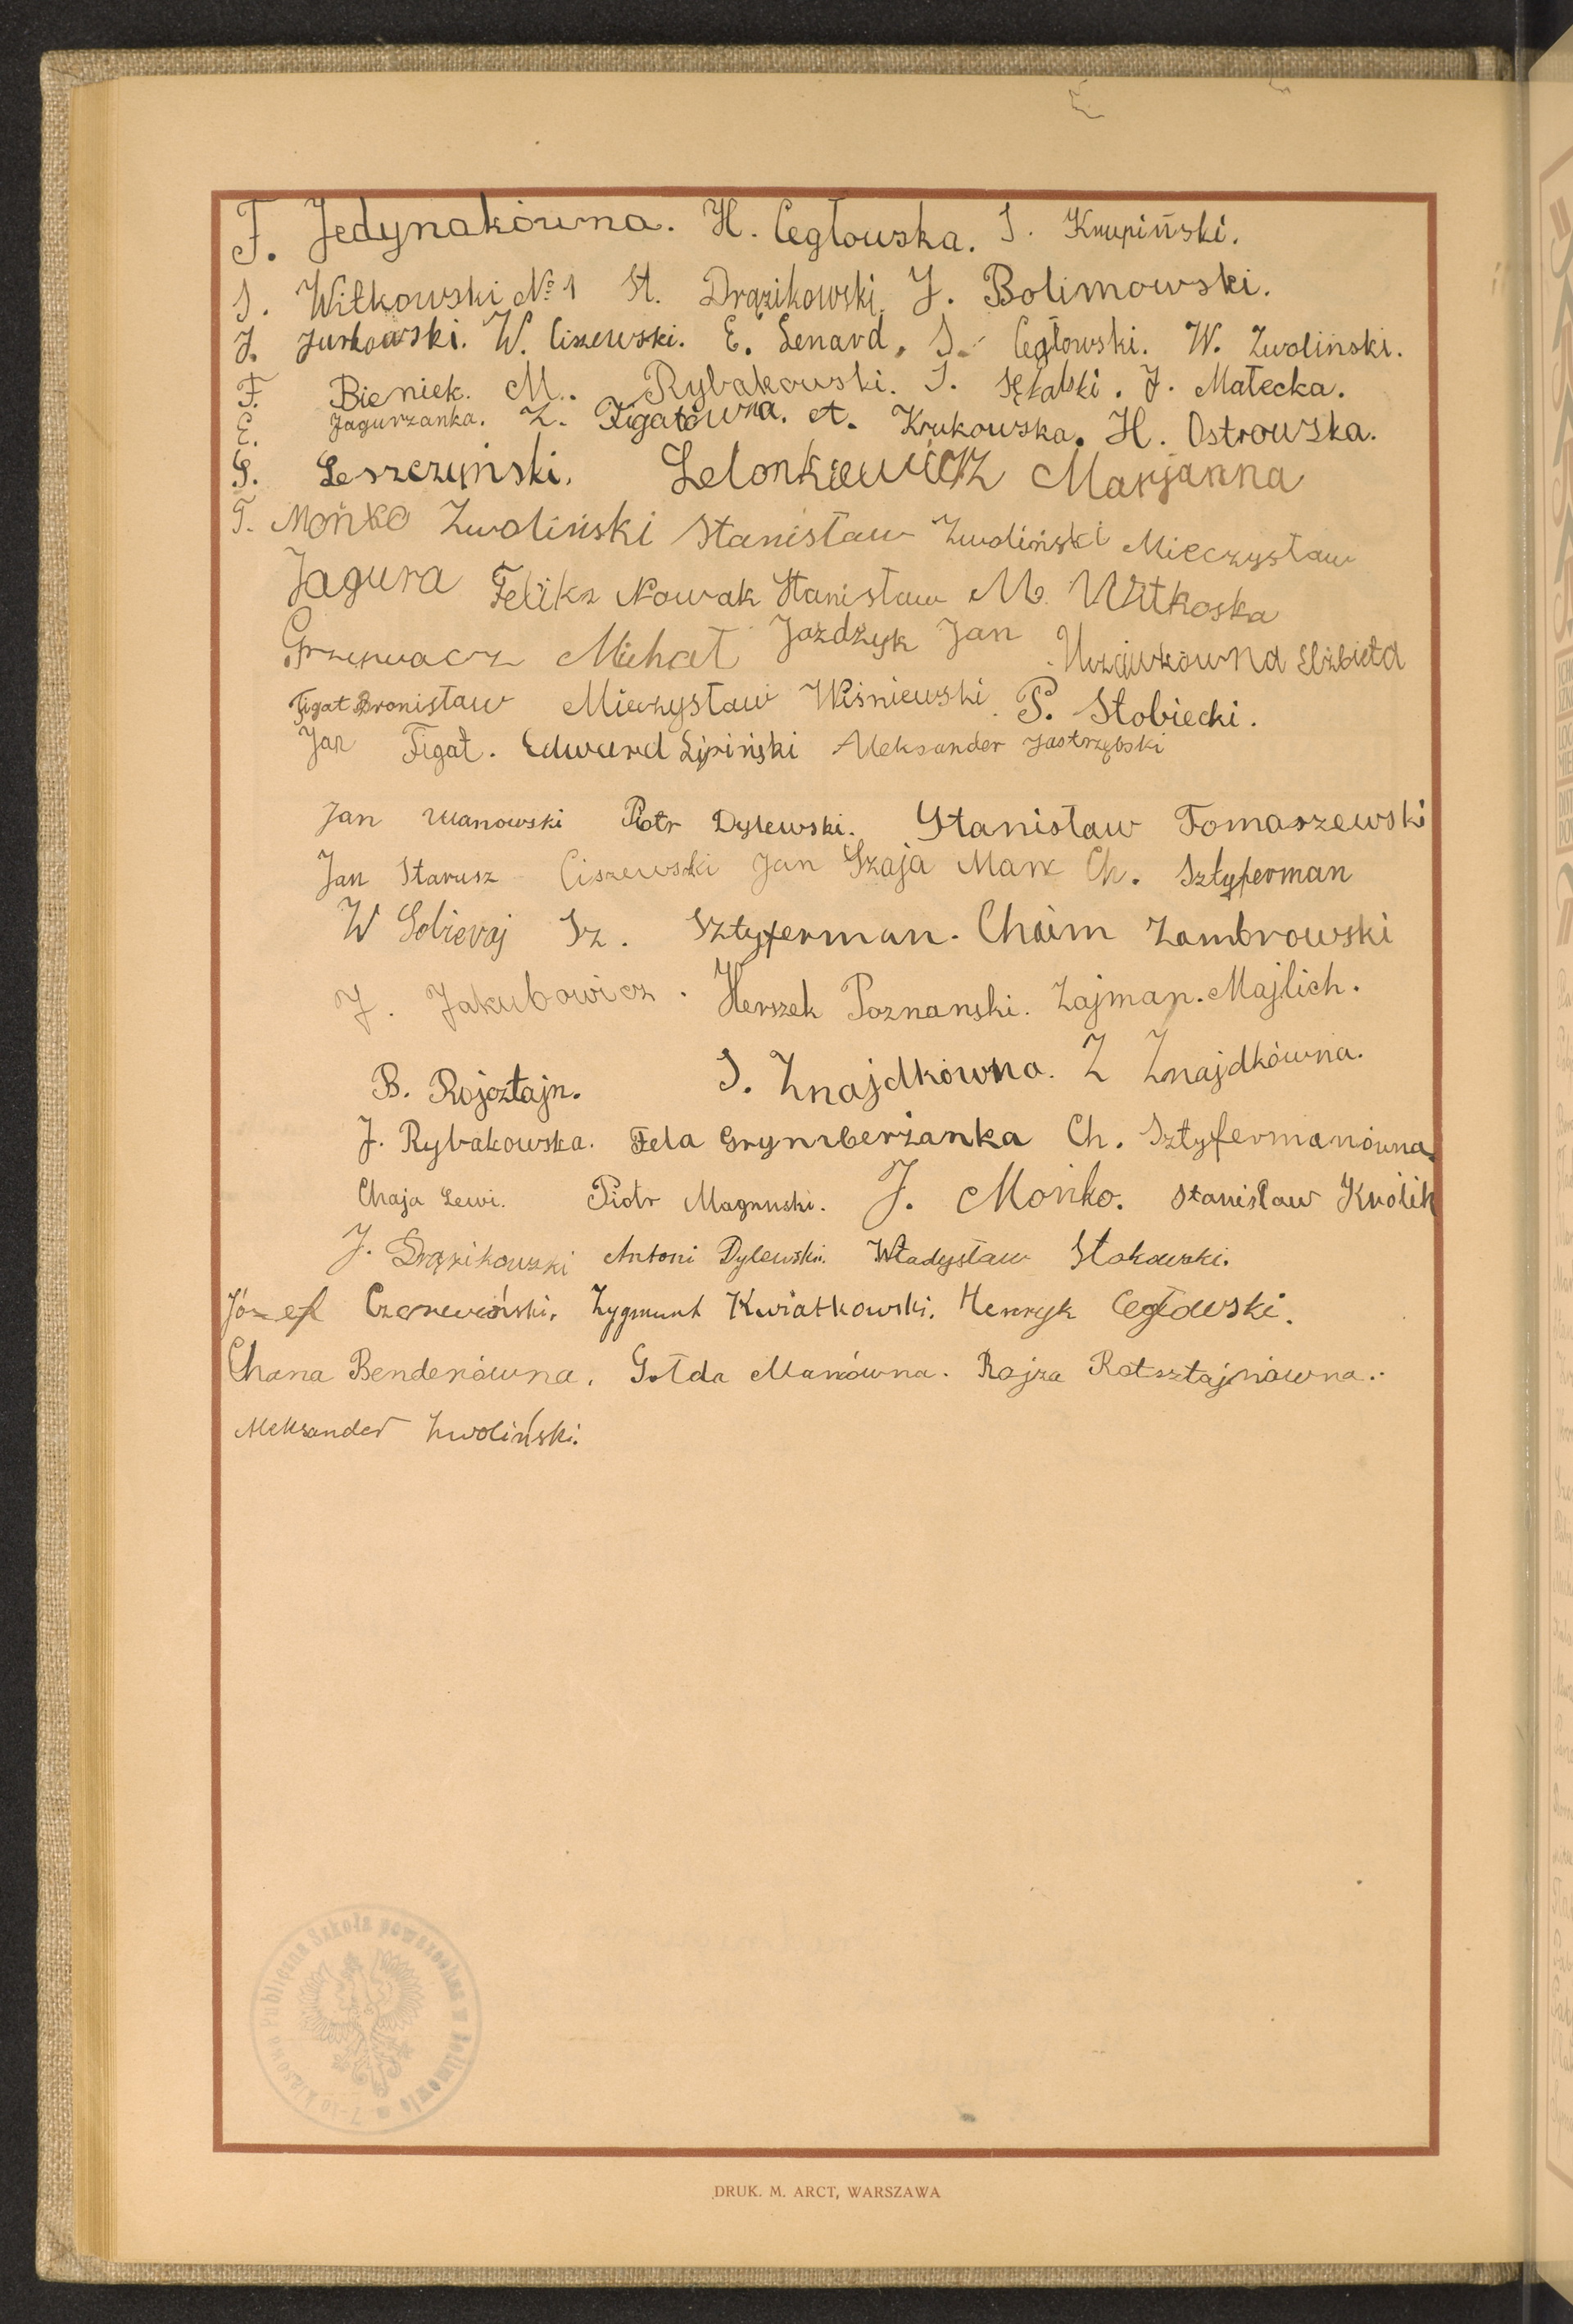 F. Jedynakówna. H. Cegłowska. S. Krupiński.
S. Witkowski № 1 St. Drązikowski, J. Bolimowski.
J. Jurkowski. W. Ciszewski. E. Lenard, S. Cegłowski. W. Zwoliński.
F. Bieniek. M. Rybakowski. S. Sękalski. J. Małecka.
E. Jagurzanka. Z. Figatówna. A. Krukowska. H. Ostrowska.
S. Leszczyński. Lelonkiewicz Marjanna
T. Mońko Zwoliński Stanisław Zwoliński Mieczysław
Jagura Feliks Nowak Stanisław M. Witkoska
Grzegorz Michał Jazdzyk Jan Elżbieta
Figat Bronisław Mieczysław Wiśniewski P. Stobiecki.
Jan Figat. Edward Lipiński Aleksander Jastrzębski
Jan Piotr Dylewski. Stanisław Tomaszewski
Jan Starusz Ciszewski Jan Szaja Man Ch. Sztyferman
W Sobieraj Sz. Sztyferman. Chaim Zambrowski
J. Jakubowicz. Herszek Poznanski. Zajman. Majlich.
B. Rojsztajn. S. Znajdkówna. Z Znajdkówna.
J. Rybakowska. Fela Grynberżanka Ch. Sztyfermanówna.
Chaja Lewi. Piotr Magnuski. J. Mońko. Stanisław Królik
J. Drązikowski Antoni Dylewski. Władysław Stokowski.
Józef Czerewiński. Zygmunt Kwiatkowski. Henryk Cegłowski.
Chana Benderówna. Gołda Manówna. Rojza Rotsztajnówna.
Aleksander Zwoliński.
7-io klasowa Publiczna Szkoła powszechna w Bolimowie
DRUK. M. ARCT, WARSZAWA